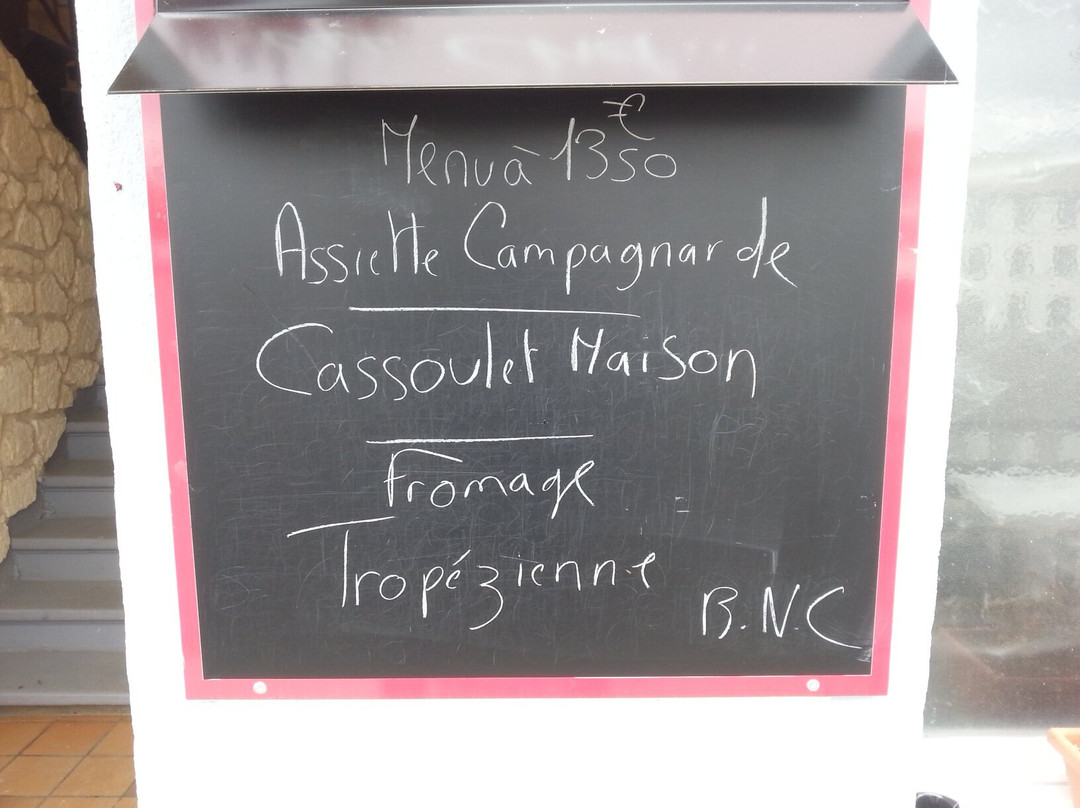 Menu à 13€50
Assiette Campagnarde
Cassoulet Maison
Fromage
Tropézienne
B.N.C